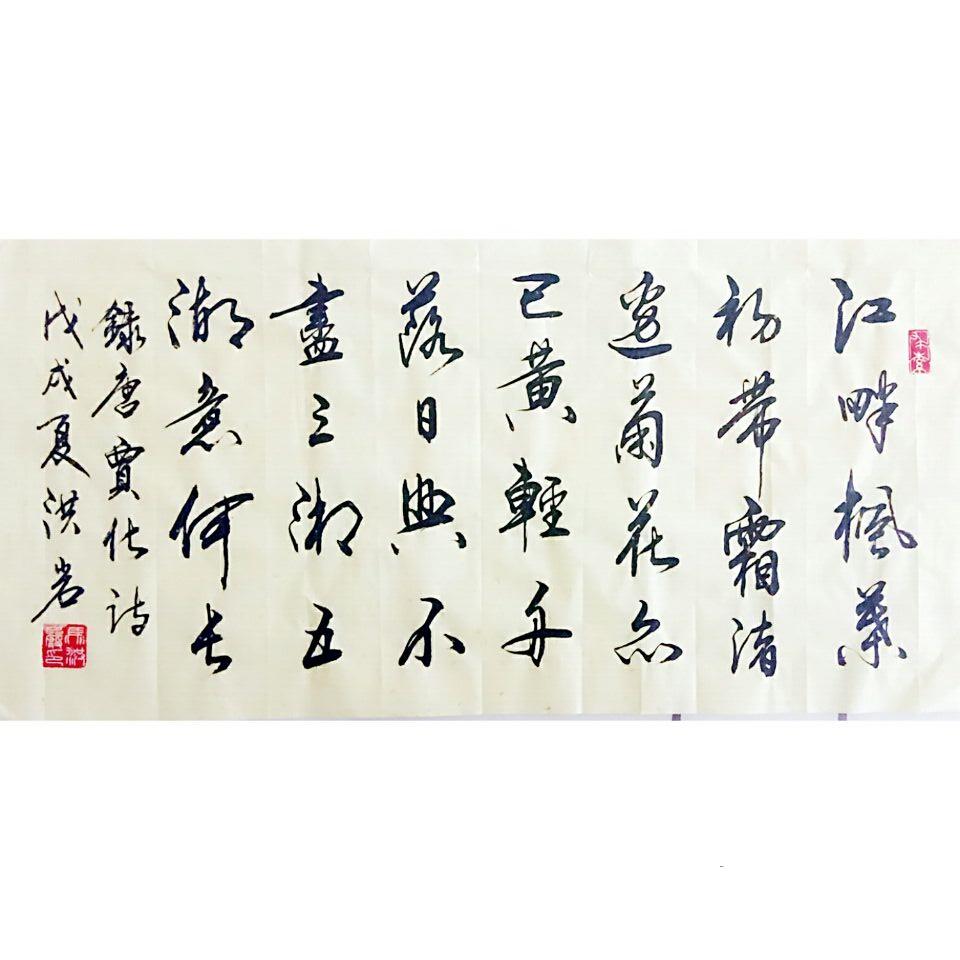 江畔楓葉
初帶霜渚
邊菊花亦
已黃輕舟
落日興不
盡三湘五
湖意何長
錄唐賈詩
戊戌夏洪岩